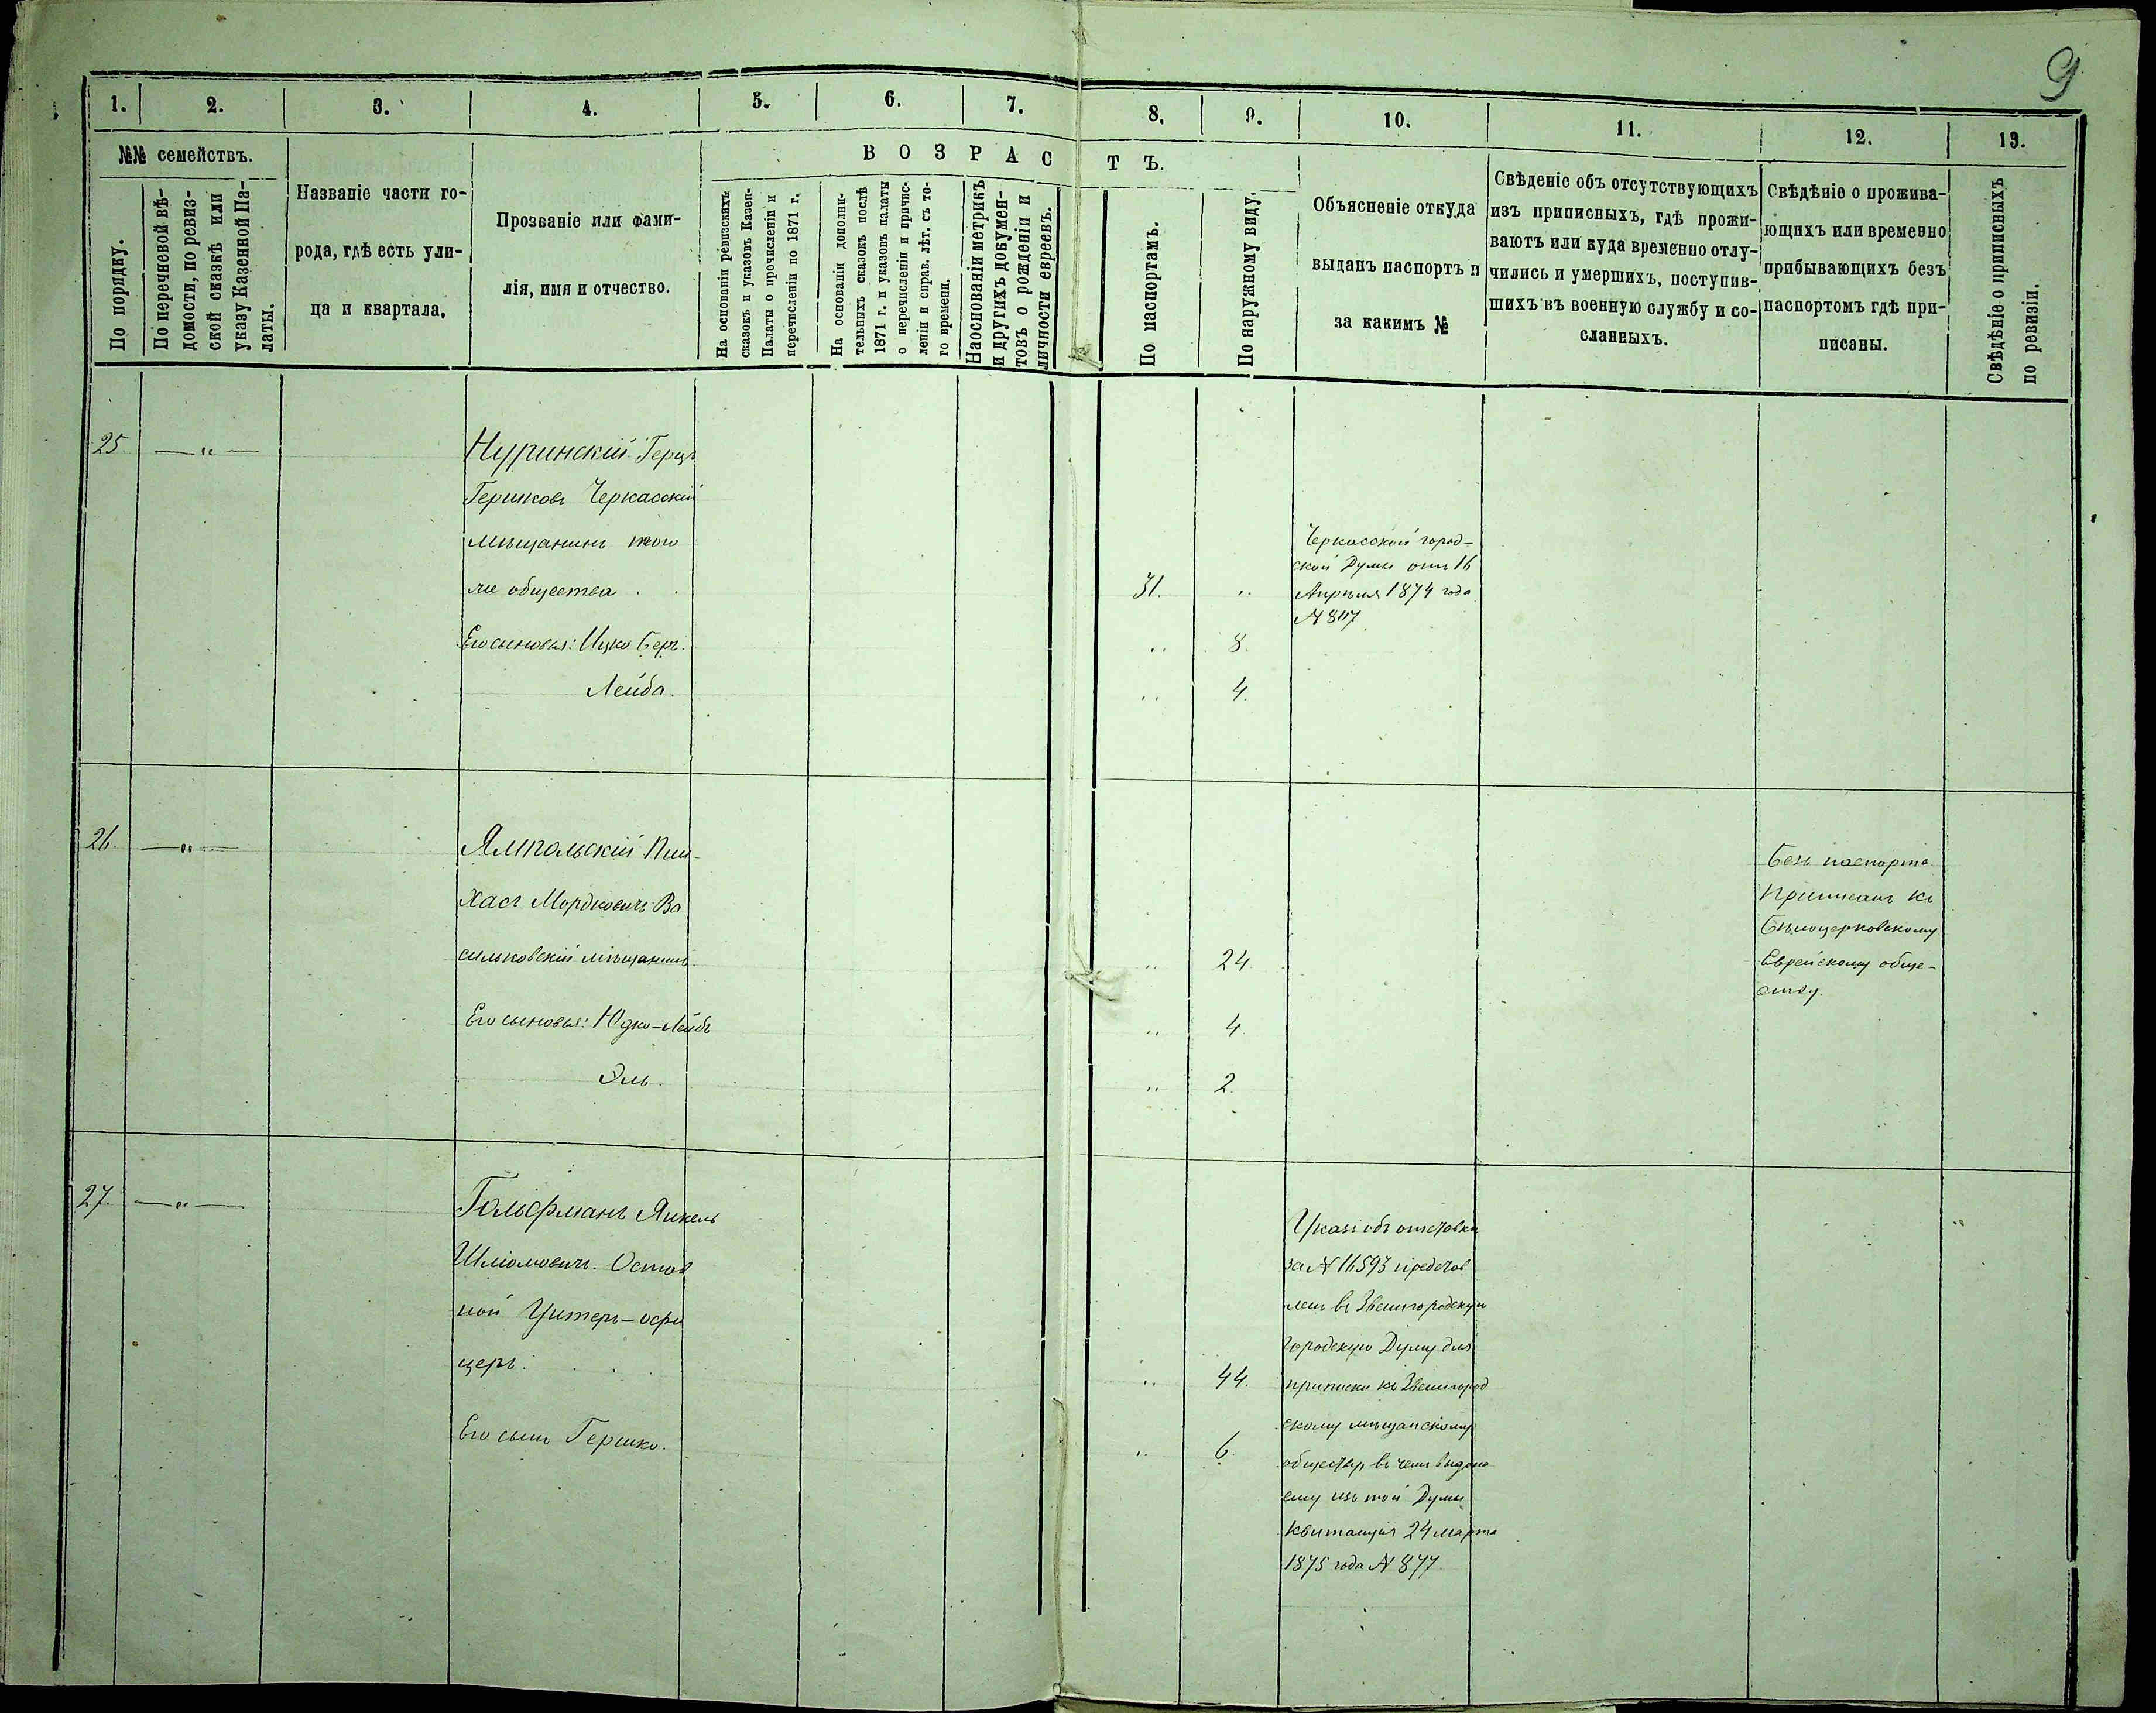 9
1. 2. 3. 4. 5. 6. 7. 8. 9. 10. 11. 12. 13.
№№ семействъ.
По порядку.
По перечневой вѣ-
домости, по ревиз-
ской сказкѣ или
указу Казенной Па-
латы.
Названіе части го-
рода, гдѣ есть ули-
ца и квартала.
Прозваніе или фами-
лія, имя и отчество.
ВОЗРАСТЪ.
На основаніи ревизскихъ
сказокъ и указовъ Казен-
Палаты о прочисленіи и
перечисленіи по 1871 г.
На основаніи дополни-
тельныхъ сказокъ послѣ
1871 г. и указовъ палаты
о перечисленіи и причис-
леніи и справ. лѣт. съ то-
го времени.
Наоснованіи метрикъ
и другихъ докумен-
товъ о рожденіи и
личности евреевъ.
По паспортамъ.
По наружному виду.
Объясненіе откуда
выданъ паспортъ и
за какимъ №
Свѣденіе объ отсутствующихъ
изъ приписныхъ, гдѣ прожи-
ваютъ или куда временно отлу-
чились и умершихъ, поступив-
шихъ въ военную службу и со-
сланныхъ.
Свѣдѣніе о прожива-
ющихъ или временно
прибывающихъ безъ
паспортомъ гдѣ при-
писаны.
Свѣдѣніе о приписныхъ
по ревизіи.
25 — " —
Нуринскій Герцъ
Гершковъ Черкасскій
мѣщанинъ того
же общества
Его сыновья: Ицко Беръ.
Лейба.
31. "
" 8.
" 4.
Черкасской город-
ской Думы отъ 16
Апрѣля 1874 года
N 807
26. — " —
Ямпольскій Пин-
хасъ Мордковичъ Ва
сильковскій мѣщанинъ.
Его сыновья: Юдко-Лейбъ
Эль.
" 24.
" 4.
" 2.
Безъ паспорта
Приписанъ къ
Бѣлоцерковскому
Еврейскому обще-
ству.
27. — " —
Гольфманъ Янкель
Шліомовичъ. Остав
ной Унтеръ-офи
церъ.
Его сынъ Гершко.
" 44.
" 6.
Указъ объ отставки
за N 16593 представ
ленъ въ Звенигородскую
городскую Думу для
приписки къ Звенигород
скому мѣщанскому
обществу въ чемъ выдана
ему изъ той Думы
квитанція 24 марта
1875 года N 877.